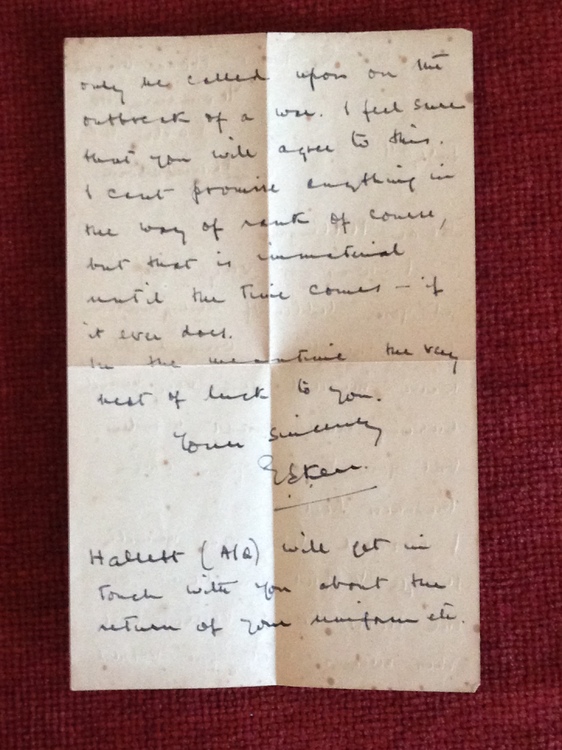 only be called upon on the
outbreak of a war. I feel sure
that you will agree to this.
I cant promise anything in
the way of rank of course,
but that is immaterial
until the time comes – if
it ever does.
In the meantime the very
best of luck to you.
Yours sincerely
Hallett (A/Q) will get in
touch with you about the
return of your uniform etc.